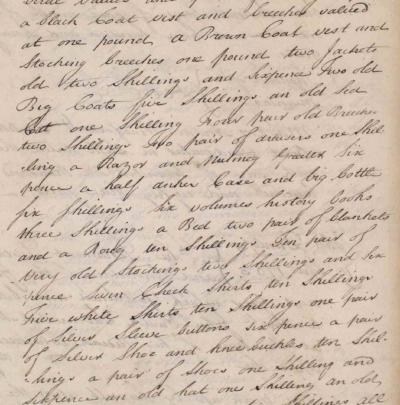 a Black Coat vest and Breeches valued
at one pound a Brown Coat vest and
Stocking Breeches one pound two Jackets
old two Shillings and Sixpence Two old
Big Coats five Shillings an old Bed
one Shilling Four pair old Breeches
two Shillings Two pair of drawers one Shil
-ling a Razor and Nutmeg Grater Six
pence a half anker Case and big Bottle
six Shillings Six volumes history books
three Shillings a Bed two pair of Blankets
and a Rug ten Shillings Ten pair of
very old Stockings two Shillings and six
pence Seven Check Shirts ten Shillings
Five white Shirts ten Shillings one pair
of Silver Sleeve buttons sixpence a pair
of Silver Shoe and knee buckles ten Shil-
-lings a pair of Shoes one Shilling and
Sixpence an old hat one Shilling an old
Shillings all